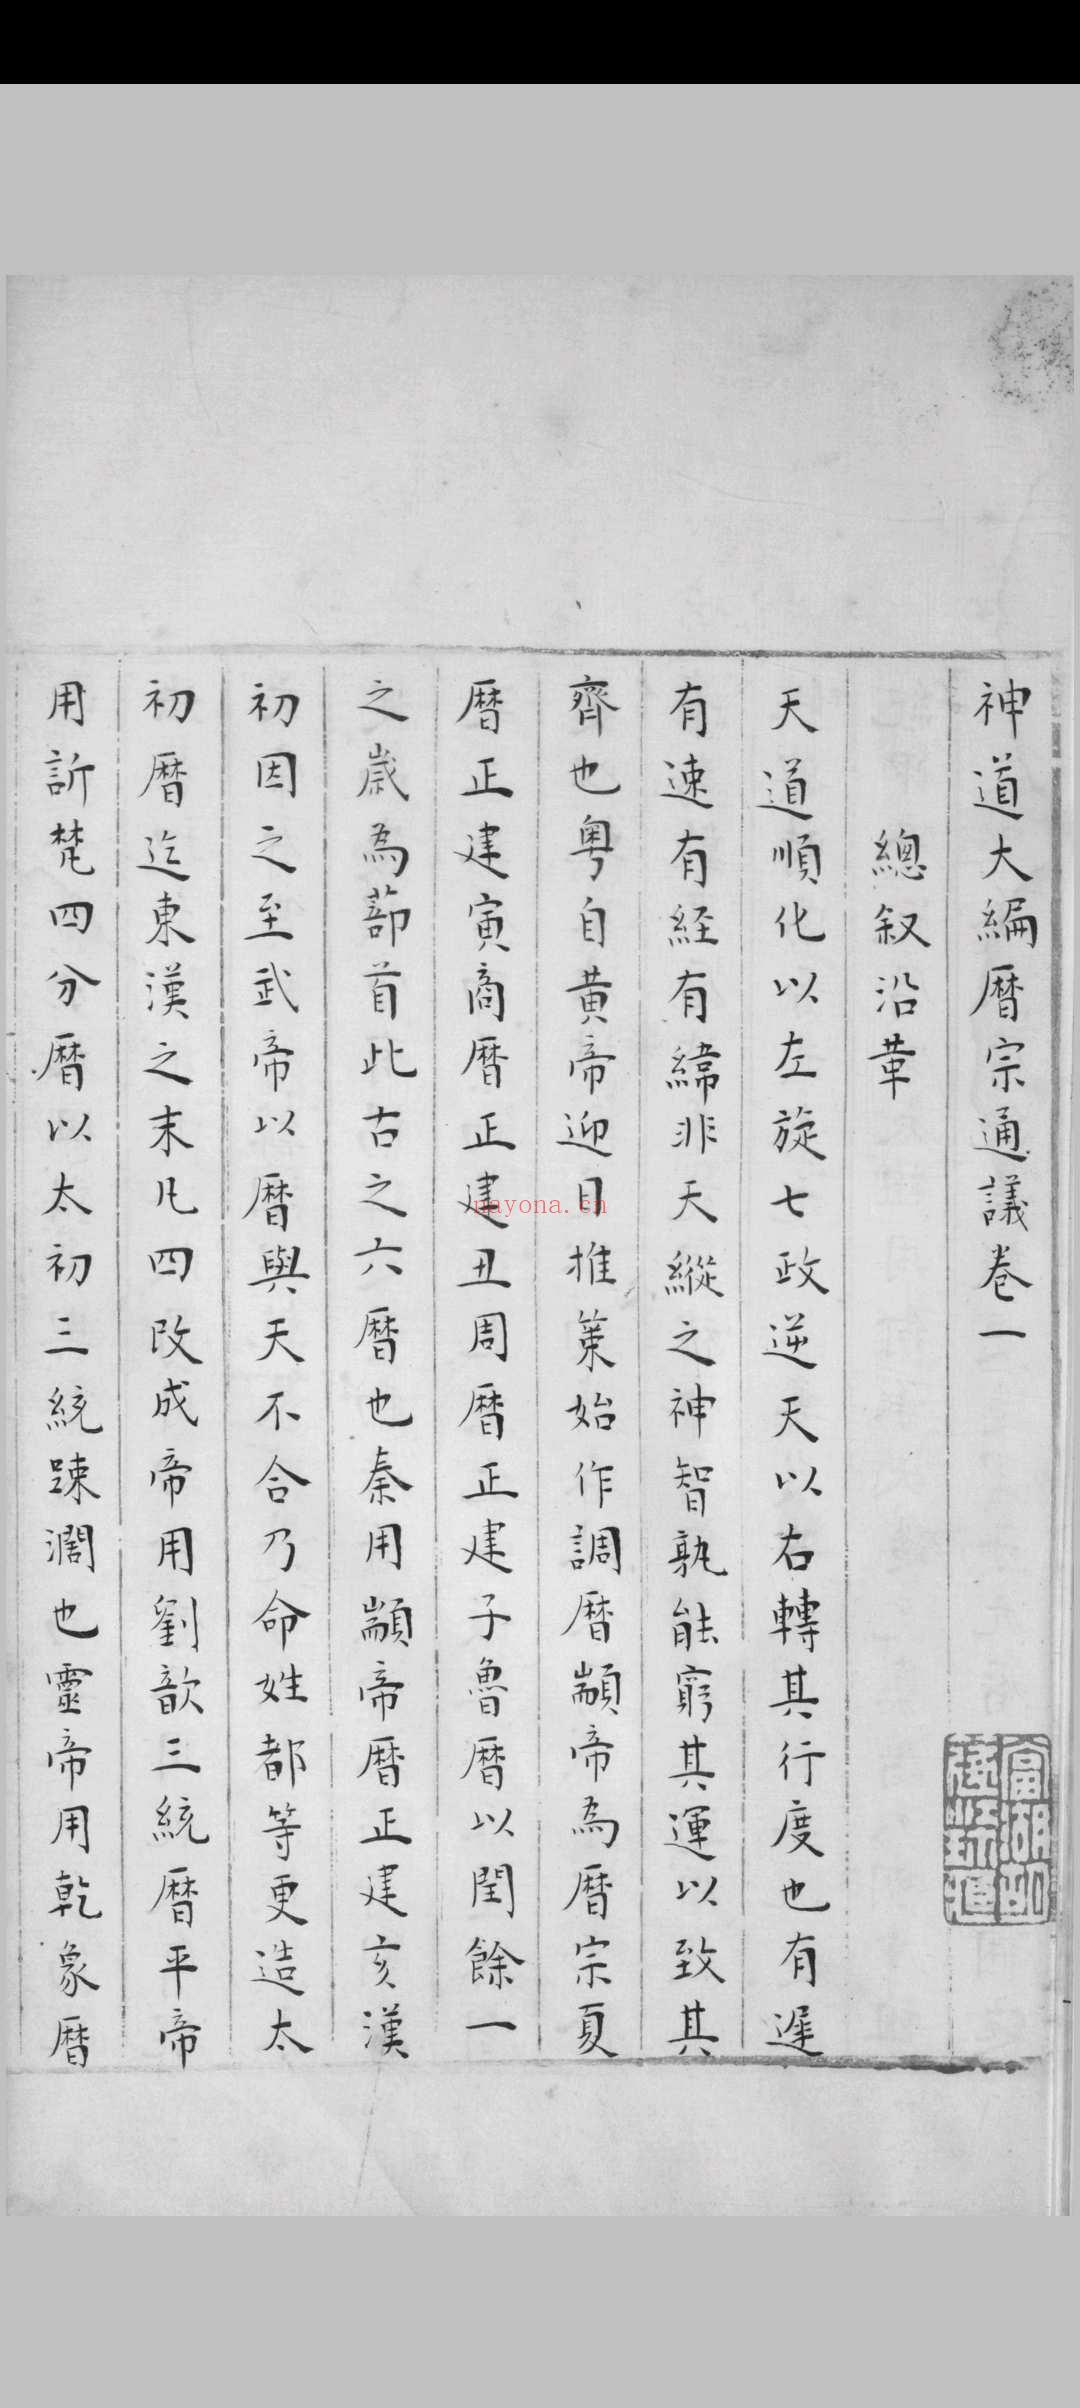 神道大編曆宗通議卷一
總叙沿革
天道順化以左旋七政逆天以右轉其行度也有遲
有速有經有緯非天縱之神智孰能窮其運以致其
齊也粤自黄帝迎日推策始作調曆顓帝為曆宗夏
曆正建寅商曆正建丑周曆正建子魯曆以閏餘一
之歲為蔀首此古之六曆也秦用顓帝曆正建亥漢
初因之至武帝以曆與天不合乃命姓都等更造太
初曆迄東漢之末凡四改成帝用劉歆三統曆平帝
用訢梵四分曆以太初三統踈濶也靈帝用乾象曆
nayona.cn